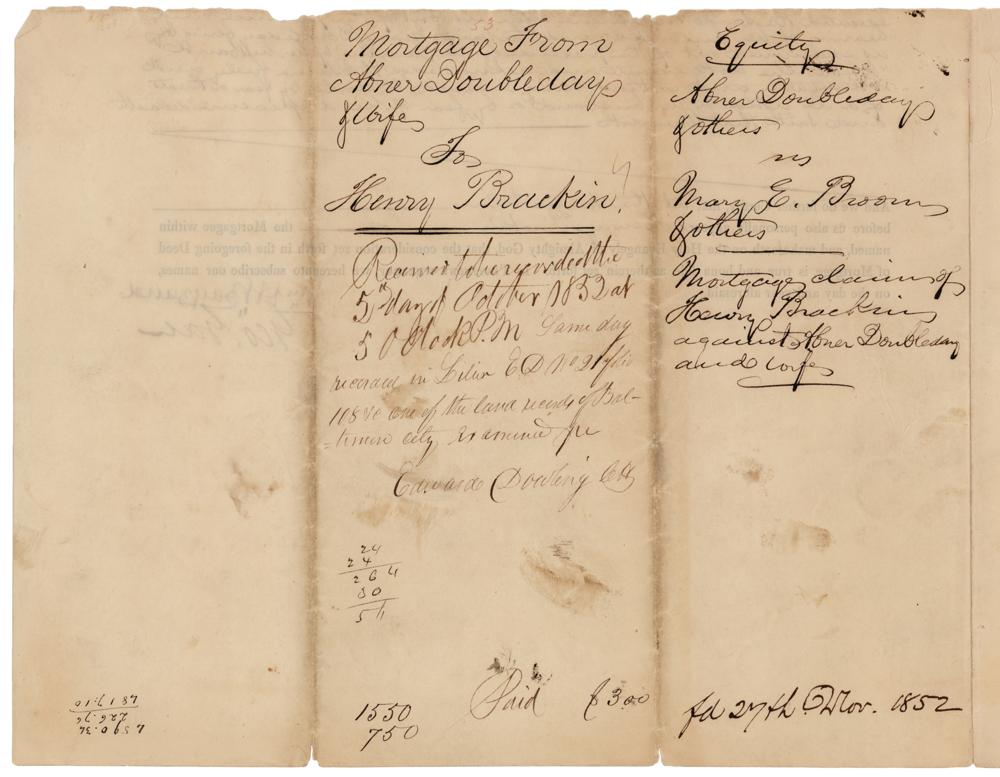 53
Mortgage From
Abner Doubleday
& wife
To
Henry Brackin.
Received to be recorded the
5th day of October 1852 at
5 O Clock P.M Same day
recorded in Liber E.D No 21 folio
108 &c one of the land records of Bal-
-timore city Examined pr
Edward Dowling Clk
24
24
264
30
54
1550
750
Paid $3.00
Equity
Abner Doubleday
& others
vs
Mary E. Broom
& others
Mortgage claim of
Henry Brackin
against Abner Doubleday
and wife
fd 27th Nov. 1852
the Mortgage within
before us also personally
named, and
God, that the consideration set forth in the foregoing Deed
subscribe our names,